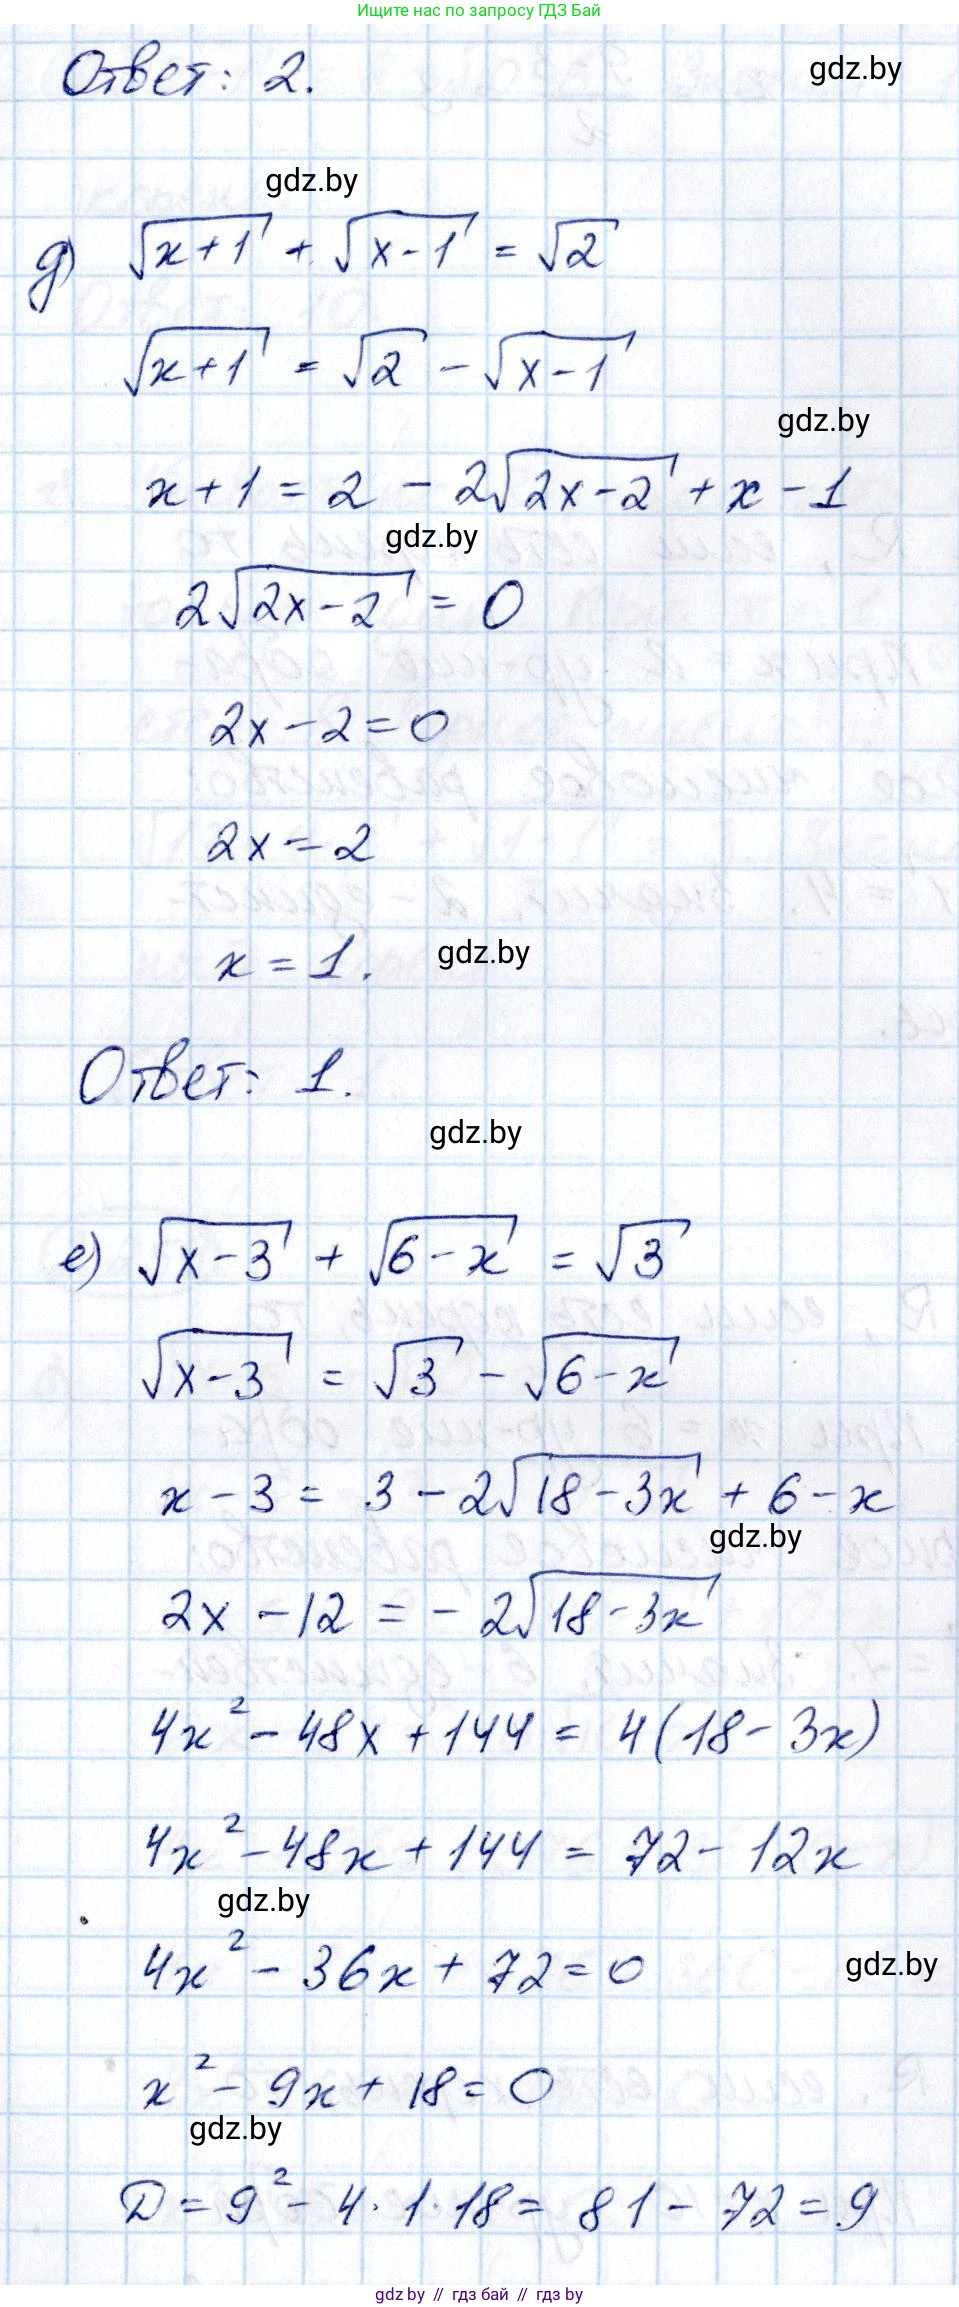 Ищите нас по запросу ГДЗ Бай
Ответ: 2.
gdz.by
gdz.by
д) √(x+1) + √(x-1) = √2
√(x+1) = √2 - √(x-1)
gdz.by
x+1 = 2 - 2√(2x-2) + x - 1
gdz.by
2√(2x-2) = 0
2x-2=0
2x=2
x=1.
gdz.by
Ответ: 1.
gdz.by
е) √(x-3) + √(6-x) = √3
√(x-3) = √3 - √(6-x)
x-3 = 3 - 2√(18-3x) + 6-x
gdz.by
2x-12 = -2√(18-3x)
4x² - 48x + 144 = 4(18-3x)
4x² - 48x + 144 = 72 - 12x
gdz.by
4x² - 36x + 72 = 0
gdz.by
x² - 9x + 18 = 0
gdz.by
D = 9² - 4·1·18 = 81 - 72 = 9
gdz by // гдз бай // gdz by